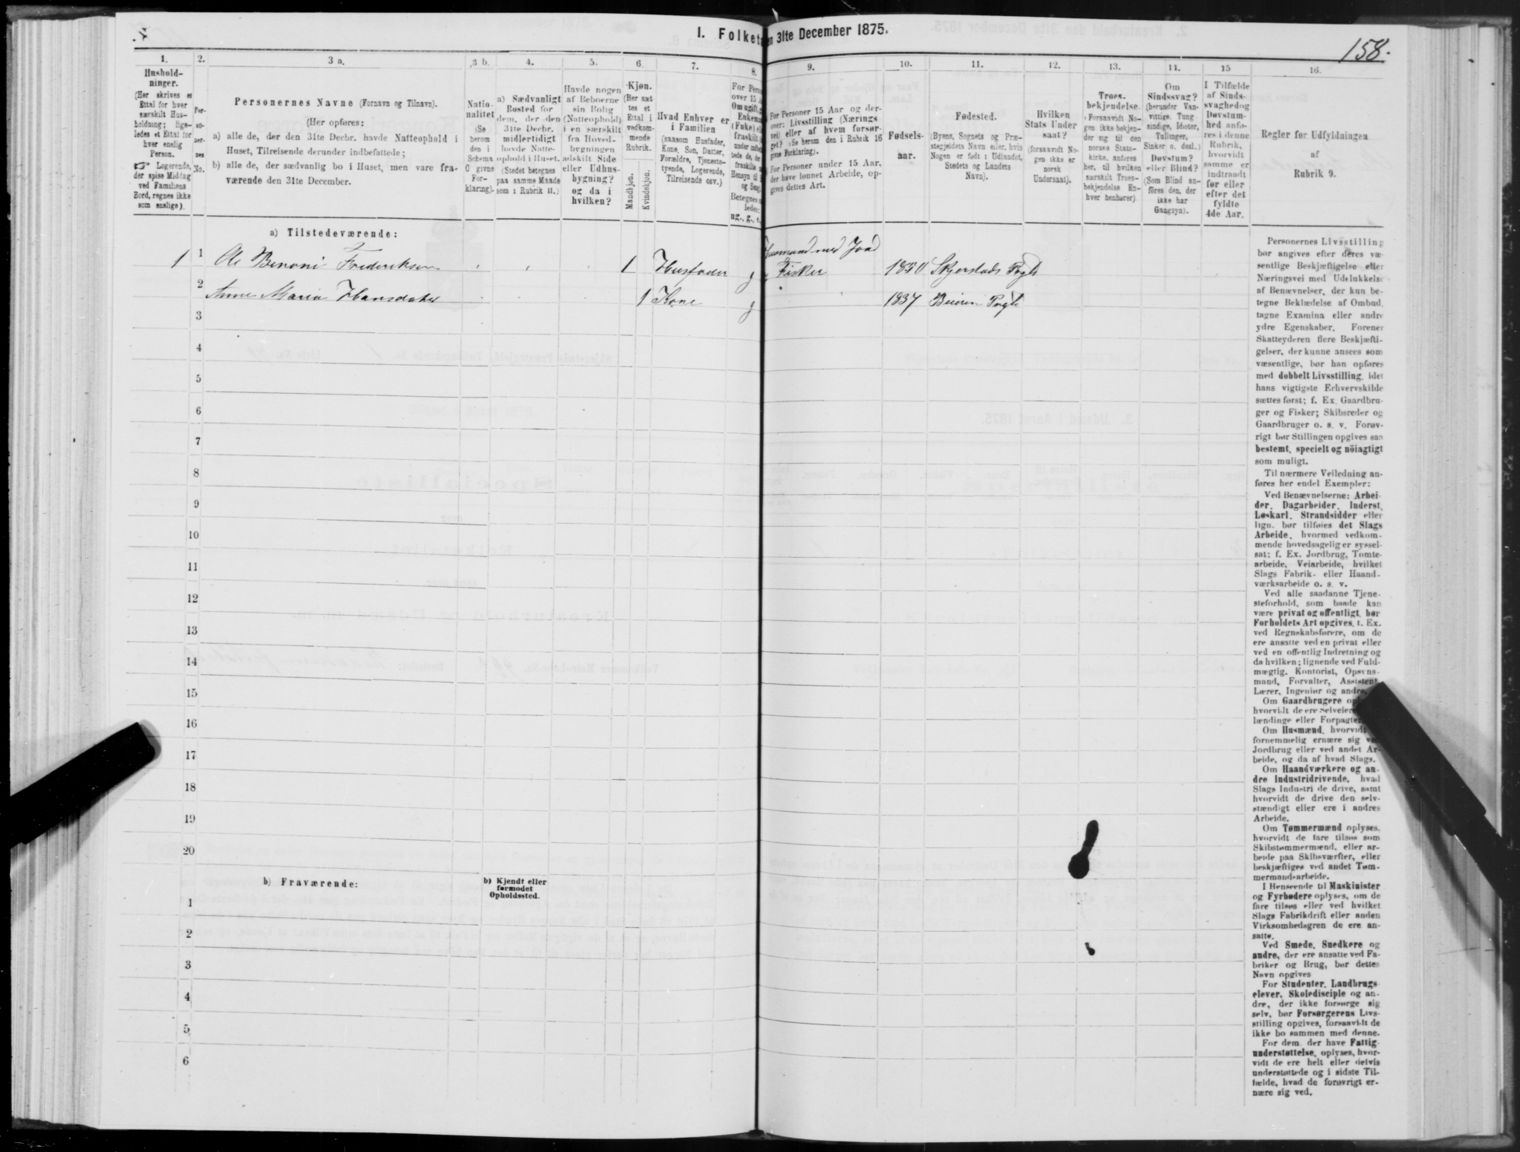 I. Folket
en 31te December 1875.
158.
1.
2.
3 a.
3 b.
4.
5.
6.
7.
8.
9.
10.
11.
12.
13.
14.
15
16.
Hushold-
ninger.
(Her skrives et
Ettal for hver
særskilt Hus-
holdning; lige-
ledes et Ettal for
hver enslig
Person.
☞ Logerende,
der spise Middag
ved Familiens
Bord, regnes ikke
som enslige).
Per-
so-
ner-
nes
No.
Personernes Navne (Fornavn og Tilnavn).
(Her opføres:
a) alle de, der den 31te Decbr. havde Natteophold i
Huset, Tilreisende derunder indbefattede;
b) alle de, der sædvanlig bo i Huset, men vare fra-
værende den 31te December.
Natio-
nalitet
(Se
herom
den i
Schema
C givne
For-
klaring).
a) Sædvanligt
Bosted for
dem, der den
31te Decbr.
midlertidigt
havde Natte-
ophold i Huset.
(Stedet betegnes
paa samme Maade
som i Rubrik 11.)
Havde nogen
af Beboerne
sin Bolig
(Natteophold)
i en særskilt
fra Hoved-
bygningen
adskilt Side
eller Udhus-
bygning?
og da i
hvilken?
Kjøn.
(Her sæt-
tes et
Ettal i
vedkom-
mende
Rubrik.
Mandkjøn.
Kvindekjøn.
Hvad Enhver er
i Familien
(saasom Husfader,
Kone, Søn, Datter,
Forældre, Tjeneste-
tyende, Logerende,
Tilreisende osv.)
For Perso
over 15 A
Om ugift, g
Enkema
(Enke) el
fraskilt
For Personer 15 Aar og der-
over: Livsstilling (Nærings-
vei) eller af hvem forsør-
get? (Se herom den i Rubrik 16
givne Forklaring).
For Personer under 15 Aar,
der have lønnet Arbeide, op-
gives dettes Art.
Fødsels-
aar.
Fødested.
(Byens, Sognets og Præ-
stegjeldets Navn eller, hvis
Nogen er født i Udlandet,
Stedets og Landets
Navn).
Hvilken
Stats Under-
saat?
(forsaavidt No-
gen ikke er
norsk
Undersaat).
Troes-
bekjendelse.
(Forsaavidt No-
gen ikke bekjen-
der sig til den
norske Stats-
kirke, anføres
her, til hvilken
særskilt Troes-
bekjendelse En-
hver henhører).
Om
Sindssvag?
(herunder Van-
vittige, Tung-
sindige, Idioter,
Tullinger,
Sinker o. desl.)
Døvstum?
eller Blind?
(Som Blind an-
føres den, der
ikke har
Gangsyn).
I Tilfælde
af Sinds-
svaghed og
Døvstum-
hed anfø-
res i denne
Rubrik,
hvorvidt
samme er
indtraadt
før eller
efter det
fyldte
4de Aar.
Regler for Udfyldningen
af
Rubrik 9.
a) Tilstedeværende:
1 1 Ole Benoni Frederiksen 1 Husfader g Husmand med Jord
Fisker 1830 Skjerstads Prgld
2 Anne Maria Hansdatter 1 Kone g 1837 Beiern Prgld
3
4
5
6
7
8
9
10
11
12
13
14
15
16
17
18
19
20
b) Fraværende:
b) Kjendt eller
formodet
Opholdssted.
1
2
3
4
5
6
Personernes Livsstilling
bør angives efter deres væ-
sentlige Beskjæftigelse eller
Næringsvei med Udelukkelse
af Benævnelser, der kun be-
tegne Beklædelse af Ombud,
tagne Examina eller andre
ydre Egenskaber. Forener
Skatteyderen flere Beskjæfti-
gelser, der kunne ansees som
væsentlige, bør han opføres
med dobbelt Livsstilling, idet
hans vigtigste Erhvervskilde
sættes først; f. Ex. Gaardbru-
ger og Fisker; Skibsreder og
Gaardbruger o. s. v. Forøv-
rigt bør Stillingen opgives saa
bestemt, specielt og nöiagtigt
som muligt.
Til nærmere Veiledning an-
føres her endel Exempler:
Ved Benævnelserne: Arbei-
der, Dagarbeider, Inderst,
Løskarl, Strandsidder eller
lign. bør tilføies det Slags
Arbeide, hvormed vedkom-
mende hovedsagelig er syssel-
sat; f. Ex. Jordbrug, Tomte-
arbeide, Veiarbeide, hvilket
Slags Fabrik- eller Haand-
værksarbeide o. s. v.
Ved alle saadanne Tjene-
steforhold, som baade kan
være privat og offentligt, bør
Forholdets Art opgives, f. Ex.
ved Regnskabsførere, om de
ere ansatte ved en privat eller
ved en offentlig Indretning og
da hvilken; lignende ved Fuld-
mægtig, Kontorist, Opsyns-
mand, Forvalter, Assistent,
Lærer, Ingeniør og andre.
Om Gaardbrugere op
hvorvidt de ere Selveiere
lændinge eller Forpagtere
Om Husmænd, hvorvidt
fornemmelig ernære sig ved
Jordbrug eller ved andet Ar-
beide, og da af hvad Slags.
Om Haandværkere og an-
dre Industridrivende, hvad
Slags Industri de drive, samt
hvorvidt de drive den selv-
stændigt eller ere i andres
Arbeide.
Om Tømmermænd oplyses,
hvorvidt de fare tilsøs som
Skibstømmermænd, eller ar-
beide paa Skibsværfter, eller
beskjæftiges ved andet Tøm-
mermandsarbeide.
I Henseende til Maskinister
og Fyrbødere oplyses, om de
fare tilsøs eller ved hvilket
Slags Fabrikdrift eller anden
Virksomhedsgren de ere an-
satte.
Ved Smede, Snedkere og
andre, der ere ansatte ved Fa-
briker og Brug, bør dettes
Navn opgives
For Studenter, Landbrugs-
elever, Skoledisciple og an-
dre, der ikke forsørge sig
selv, bør Forsørgerens Livs-
stilling opgives, forsaavidt de
ikke bo sammen med denne.
For dem, der have Fattig-
understøttelse, oplyses, hvor-
vidt de ere helt eller delvis
understøttede og i sidste Til-
fælde, hvad de forøvrigt er-
nære sig ved.